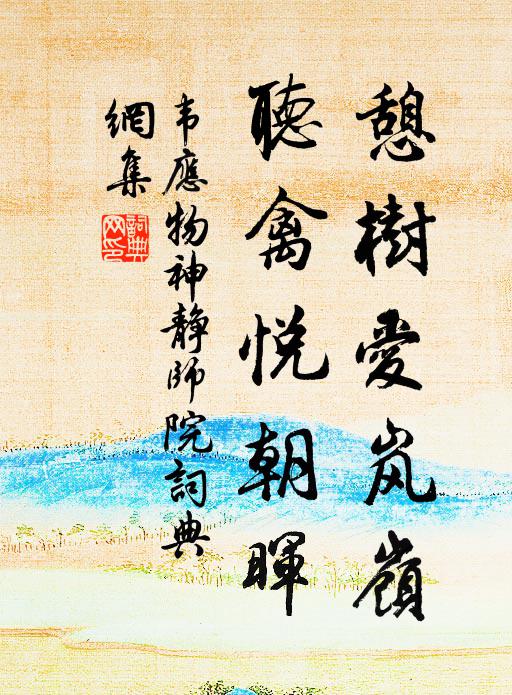 憩樹愛岚嶺
聽禽悦朝暉
韦應物神静師院詞典
網集
詞典
网印